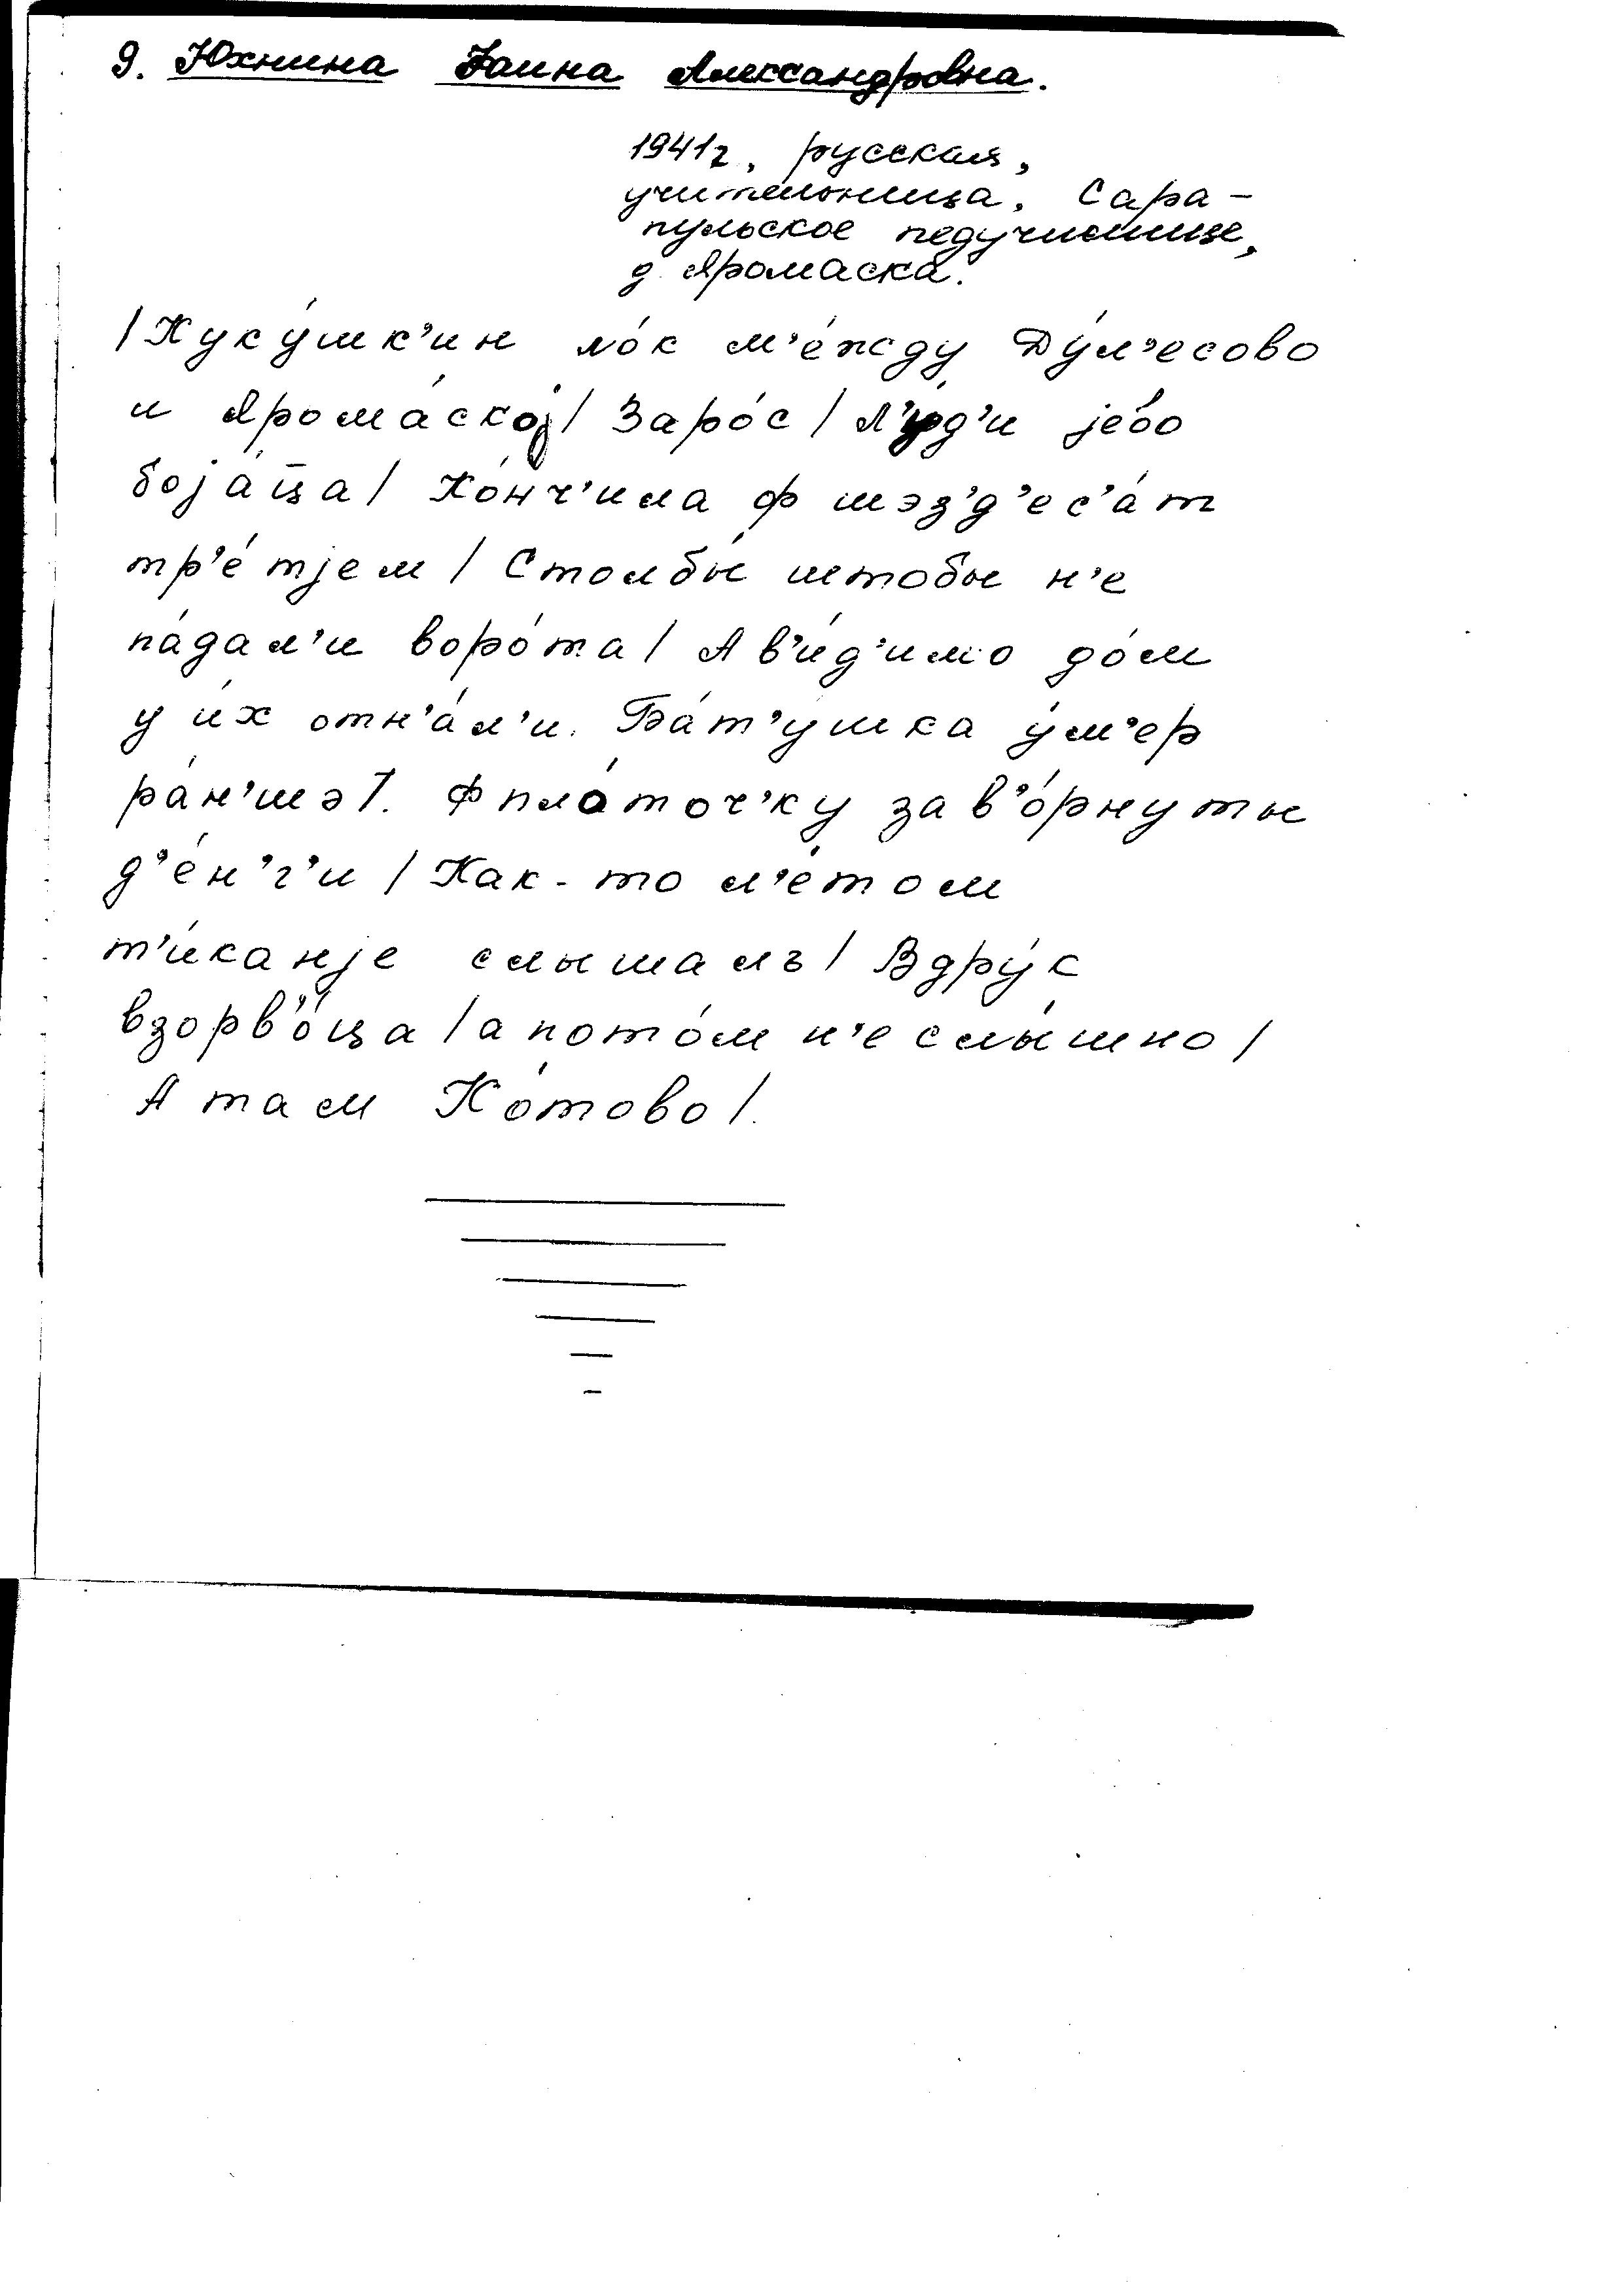 9. Юхнина Фаина Александровна.
1941г, русская,
учительница. Сара-
пульское педучилище,
д. Яромаска.
/Куку́шк'ин ло́к м'е́жду Ду́л'есово
и Ярома́скоj/ Заро́с/ Л'у́д'и jево́
боjа́ц̅а/ Ко́нч'ила ф шэз'д'ес'а́т
тр'е́тjем/ Столбы́ штобы н'е
па́дал'и воро́та/ А в'и́д'имо до́м
у и́х отн'а́л'и. Ба́т'ушка у́м'ер
ра́н'шэ/. Ф пла́точ'ку зав'о́рнуты
д'е́н'г'и/ Как-то л'е́том
т'и́канjе слышалъ/ Вдру́к
взорв'о́ца/ а пото́м н'е слы́шно/
А там Ко́тово/.